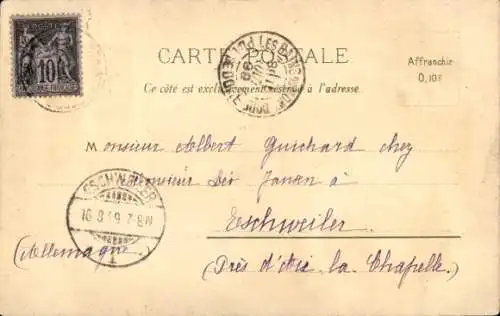 10
CARTE POSTALE
Affranchir
0,10f
Ce côté est exclusivement réservé à l'adresse.
LES BAINS
DOUBS
Monsieur Albert Guichard chez
Monsieur Jansen à
ESCHWEILER
16.8. 7-8N
1
Eschweiler
(Allemagne)
(Près d'Aix la Chapelle)